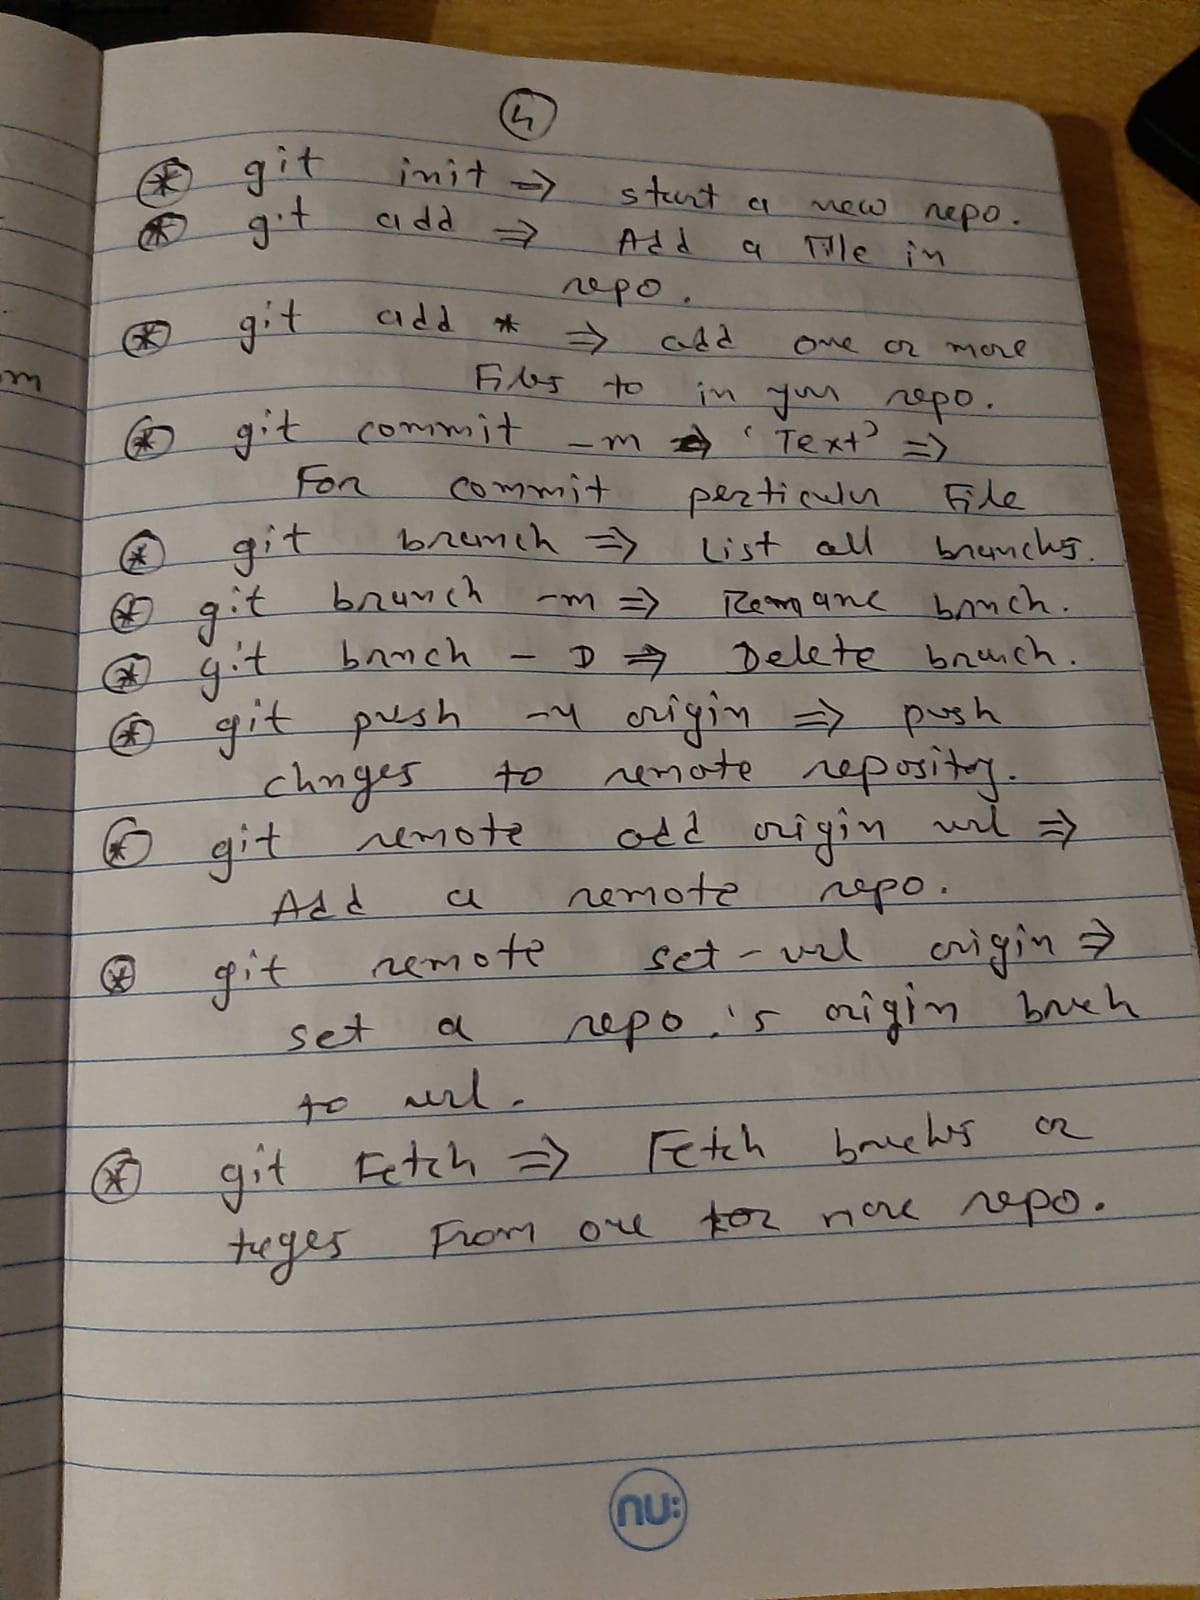 4
* git init => start a new repo.
* git add => Add a File in
repo.
m
* git add * => add one or more
Files to in your repo.
* git commit -m => 'Text' =>
For commit perticular File
* git branch => List all branches.
* git branch -m => Remane branch.
* git branch - D => Delete branch.
* git push -u origin => push
chnges to remote repository.
* git remote add origin url =>
Add a remote repo.
* git remote set-url origin =>
set a repo.'s origin brach
to url.
* git Fetch => Fetch braches or
teges From one or more repo.
nu: